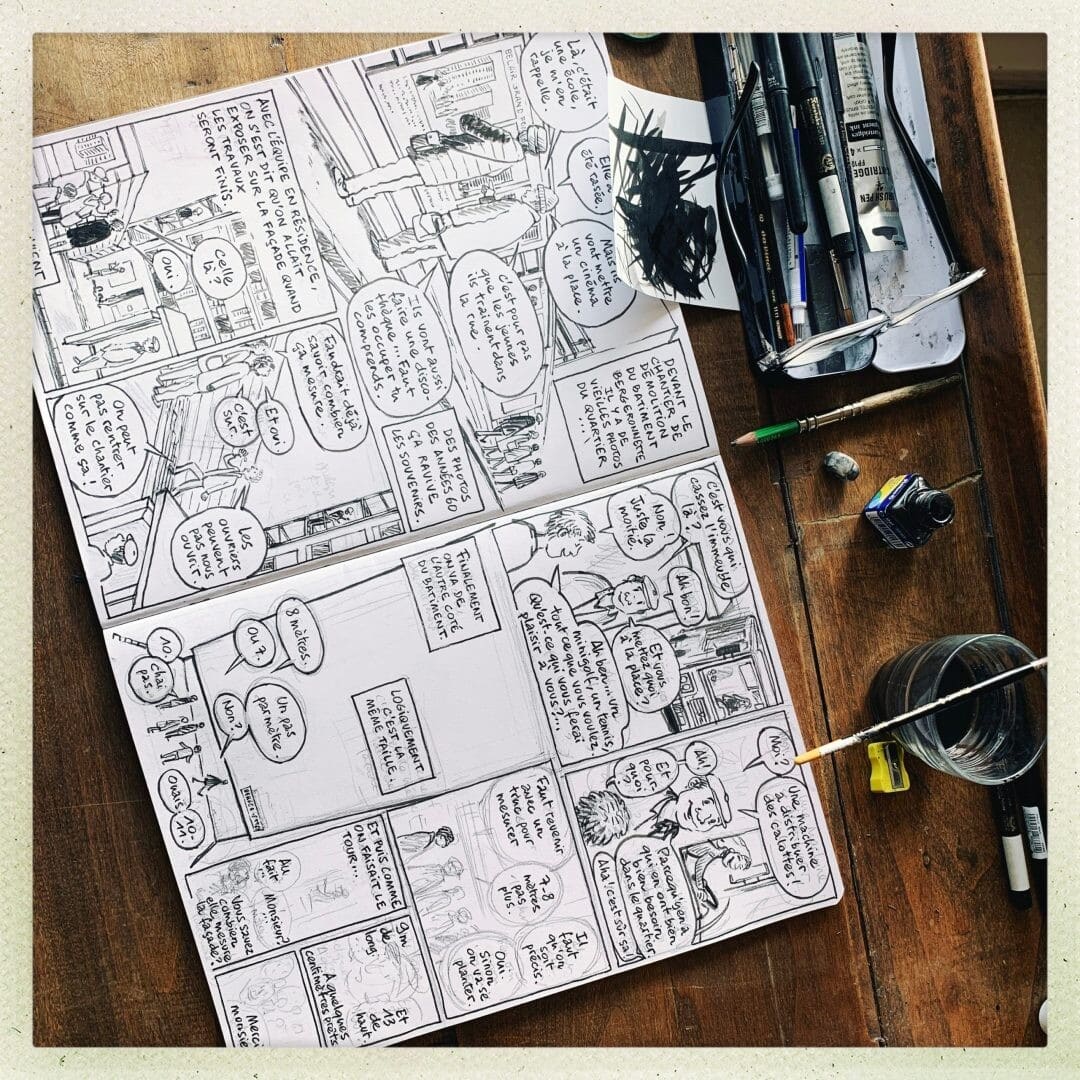 Là, c'était
une école
je m'en
rappelle.
Elle a
été rasée.
Mais ils
vont mettre
un cinéma
à la place.
DEVANT LE
CHANTIER DE
DÉMOLITION
DU BATIMENT
BERGERONNETTE
IL Y A DE
VIEILLES PHOTOS
DU QUARTIER
...
C'est pour pas
que les jeunes
ils trainent dans
la rue.
Ils vont aussi
faire une disco-
thèque... Faut
les occuper tu
comprends.
DES PHOTOS
DES ANNÉES 60
ÇA RAVIVE
LES SOUVENIRS.
AVEC L'ÉQUIPE EN RÉSIDENCE,
ON S'EST DIT QU'ON ALLAIT
EXPOSER SUR LA FAÇADE QUAND
LES TRAVAUX
SERONT FINIS.
Celle
là?
Oui.
Faudrait déjà
savoir combien
ça mesure.
Et oui
c'est
sur.
On peut
pas rentrer
sur le chantier
comme sa!
Les
ouvriers
peuvent
pas nous
ouvrir.
C'est vous qui
cassez l'immeuble
là?
Non!
Juste la
moitié.
Ah bon!
Et vous
mettez quoi
à la place?
Ah ben... un
minigolf, un tennis,
tout ce que vous voulez.
Qu'est ce qui vous ferai
plaisir à vous?...
Moi?
Une machine
à distribuer
des calottes!
Ah!
Et
pour-
quoi?
Parcequ'yen a
qui en ont bien
bien besoin
dans le quartier.
Aha! c'est sûr sa!
FINALEMENT
ON VA DE
L'AUTRE COTÉ
DU BATIMENT.
LOGIQUEMENT
C'EST LA
MÊME TAILLE.
8 mètres.
Ou 7.
Un pas
par mètre.
Non?
10.
chai
pas.
10-
11.
Ouais.
Faut revenir
avec un
truc pour
mesurer
7-8
mètres
pas
plus.
Il
faut
qu'on
soit
précis.
Oui
Sinon
on va se
planter.
ET PUIS COMME
ON FAISAIT LE
TOUR...
Au
fait...
Monsieur?
Vous savez
combien
elle mesure
la façade?
9m
de
long.
Et
13
de
haut.
A quelques
centimètres prêts
Merci
monsie
BRUSH PEN
CARTRIDGES
FP10